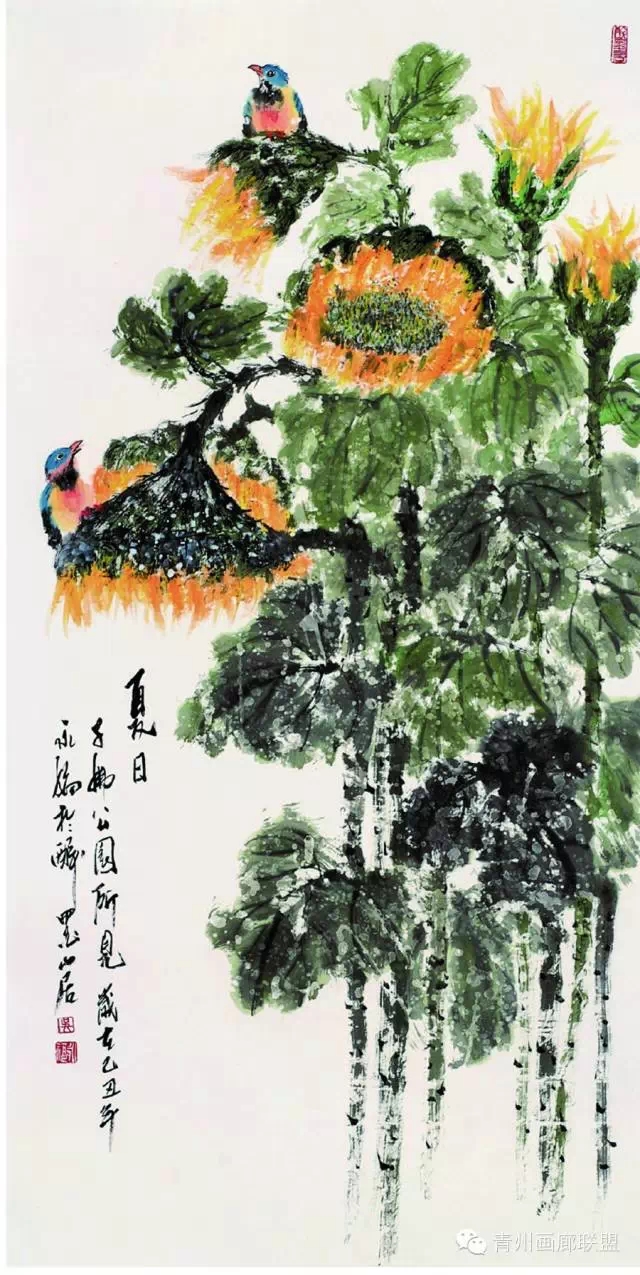 夏日
公園所見 歲在乙丑年
永於醉墨山居
青州画廊联盟